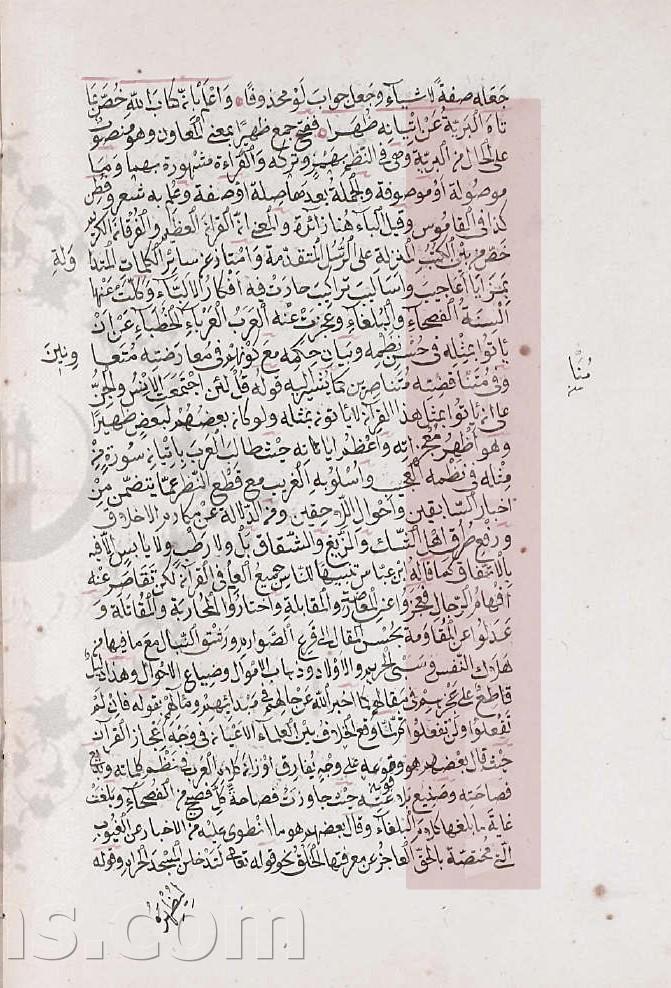 جعله صفة لاشياء وجعل جواب لو محذوفا واعلم بان كتاب الله خص بما
تاه البرية عن اتيانه ظهرا ففتح جمع ظهيرا بمعنى المعاون وهو منصوب
على الحال من البرية وهى فى النظم بهمز وتركه والقراءة مشهورة بهما وما
موصولة او موصوفة والجملة بعدها صلة او صفة وعلم به شعر وفطن
كذا فى القاموس وقيل الباء هنا زائرة والمعنى ان القران العظيم والفرقان الكريم
خص من بين الكتب المنزلة على الرسل المتقدمة وامتاز عن سائر الكلمات
ولة
بمزايا اعاجيب واساليب تراكيب حارت فيه افكار الالباء وكلت عنها
السنة الفصحاء والبلغاء وعجزت عنه العرب العرباء الخطباء عن ان
يأتوا بمثله فى حسن نظمه وبيان حكمه مع كونهم فى معارضته
وفى مناقضته متناصرين كما يشير اليه قوله قل لئن اجتمعت الانس والجن
على ان يأتوا بمثل هذا القران لا يأتون بمثله ولو كان بعضهم لبعض ظهيرا
وهو اظهر معجزاته واعظم اياته حيث طالب العرب باتيان سورة من
مثله فى نظمه واسلوبه الغريب مع قطع النظر عما يتضمن من
اخبار السابقين واحوال اللاحقين ومن الدلالة عن مكارم الاخلاق
ورفع طرق اهل والزيغ والشقاق بل ولا رطب ولا يابس الا فيه
بالاتفاق كما قاله ابن عباس تنبيها للناس جميع العلم فى القران لكن تقاصر عنه
افهام الرجال فعجزوا عن المعارضة والمقابلة واختاروا المحاربة والمقاتلة و
عدلوا عن المقاومة بحسن المقال الى قرع الصوارم ورشق النبال مع ما فيها من
هلاك النفس وسبى الحريم والاولاد وذهاب الاموال وضياع الاحوال وهذا دليل
قاطع على عجزهم فى مقالهم كما اخبر الله عن حالهم فى مبدائهم ومآلهم بقوله فان لم
تفعلوا ولن تفعلوا وقع الخلاف بين العلماء الاعيان فى وجه اعجاز القرآن
حيث قال بعضهم هو وقوعه على وجه يفارق اوزان كلام العرب فى نظم كلماته
فصاحته وصنيع بلاغته حيث جاوزت فصاحة كل فصيح من الفصحاء وبلغت
غاية ما بلغها كلام البلغاء وقال بعضهم هو ما انطوى عليه من الاخبار عن الغيوب
التى مختصة بالحق العاجز عن معرفتها الخلق نحو قوله تعالى لتدخلن المسجد الحرام وقوله
ns.com